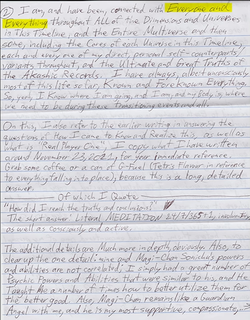 ② I am, and have been, connected with Everyone and
Everything throughout All of the Dimensions and Universes
in This Timeline, and the Entire Multiverse and then
some, including the Cores of each Universe in this Timeline,
each and every one of my direct, personal self-counterparts/
variants throughout, and the Ultimate and Great Truths of
the Akashic Records. I have always, albeit unconsciously
most of this life so far, Known and Fore-known Everything.
So, yes, I know where I am going and I and my Body is where
we need to be during these Transitioning events and all.
On this, I also refer to the earlier writing in answering the
questions of How I Came to Know and Realize this, as well as
what is "Real Player One". I copy what I have written
around November 23, 2021, for your immediate reference.
Grab some coffee or a can of G-Fuel (Tetris Flavor in reference
to everything falling into place) because this is a long, detailed
answer.
Of which I Quote
"How did I reach the truth and conclusions?"
The short answer: Literal MEDITATION 24/7/365
as well as consciously and active.
The additional details are Much more in depth, obviously. Also, to
clear up the one detail: mine and Magi-Chan Sonichu's powers
and abilities are not correlated; I simply had a great number of
Psychic Powers and Abilities that were similar to his, and he
taught me a number of times how to better utilize them for
the better good. Also, Magi-Chan remains like a Guardian
Angel with me, and he is my most supportive, compassionate,